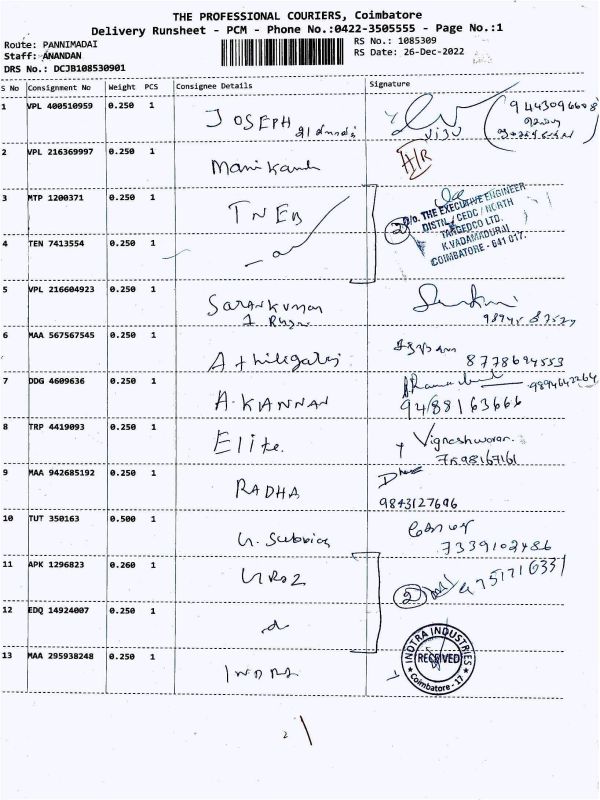 THE PROFESSIONAL COURIERS, Coimbatore
Delivery Runsheet - PCM - Phone No.:0422-3505555 - Page No.:1
Route: PANNIMADAI
RS No.: 1085309
Staff: ANANDAN
RS Date: 26-Dec-2022
DRS No.: DCJB108530901
S No Consignment No Weight PCS Consignee Details Signature
1 VPL 400510959 0.250 1 JOSEPH 9443096608
VIJU
2 VPL 216369997 0.250 1 Manikand H/R
3 MTP 1200371 0.250 1 TNEB
O/o. THE EXECUTIVE ENGINEER
DISTN. / CEDC / NORTH
TANGEDCO LTD.
K.VADAMADURAI
COIMBATORE - 641 017.
2
4 TEN 7413554 0.250 1
5 VPL 216604923 0.250 1 Sarankumar
6 MAA 567567545 0.250 1 8778694553
7 DDG 4609636 0.250 1 A. KANNAN 9894642264
9488163666
8 TRP 4419093 0.250 1 Elite. Vigneshwaran.
7598167161
9 MAA 942685192 0.250 1 RADHA
9843127696
10 TUT 350163 0.500 1 U. Subbias
7339102486
11 APK 1296823 0.260 1 2 9751716331
12 EDQ 14924007 0.250 1
13 MAA 295938248 0.250 1 INDRA
INDTRA INDUSTRIES
RECEIVED
Coimbatore - 17
2